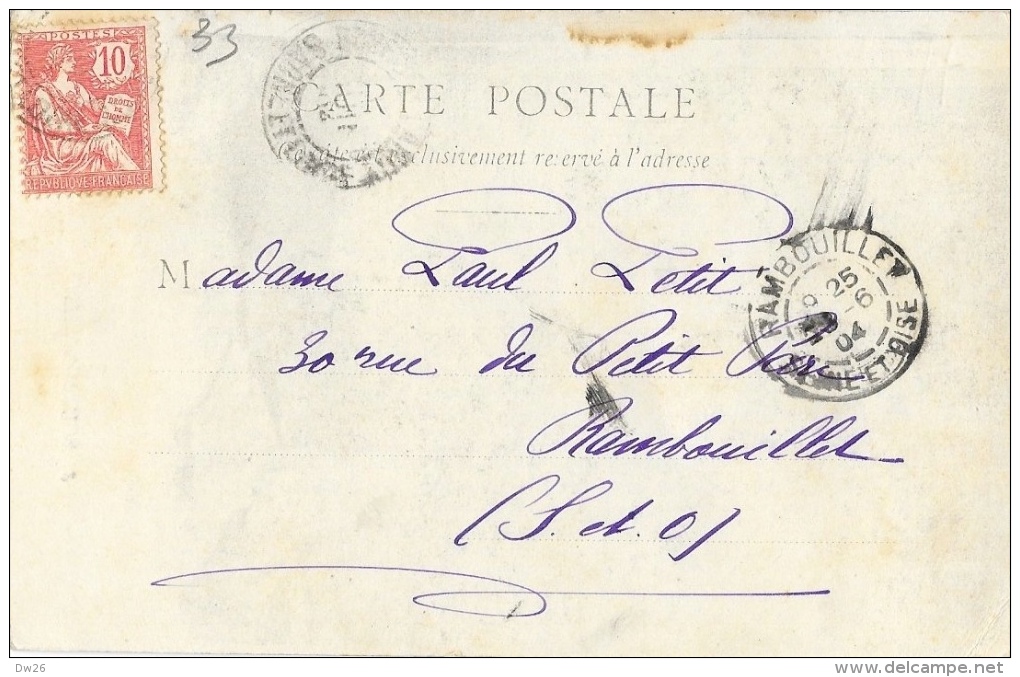 POSTES
10
DROITS
DE
L'HOMME
REPVBLIQVE FRANÇAISE
33
CARTE POSTALE
exclusivement réservé à l'adresse
Madame Paul Petit
30 rue du Petit
Rambouillet
(S. et. O)
RAMBOUILLET
25
-6
04
SEINE-ET-OISE
Dw26
www.delcampe.net